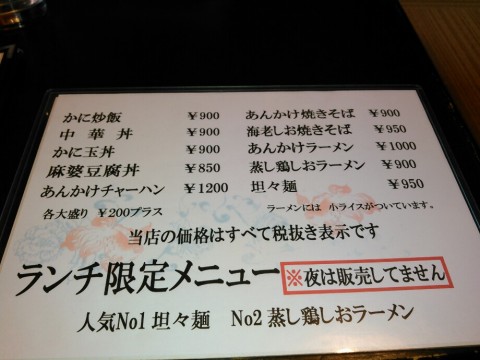 かに炒飯 ￥900
中華丼 ￥900
かに玉丼 ￥900
麻婆豆腐丼 ￥850
あんかけチャーハン ￥1200
各大盛り ￥200プラス
あんかけ焼きそば ￥900
海老しお焼きそば ￥950
あんかけラーメン ￥1000
蒸し鶏しおラーメン ￥900
坦々麺 ￥950
ラーメンには 小ライスがついています。
当店の価格はすべて税抜き表示です
ランチ限定メニュー ※夜は販売してません
人気No1 坦々麺 No2 蒸し鶏しおラーメン